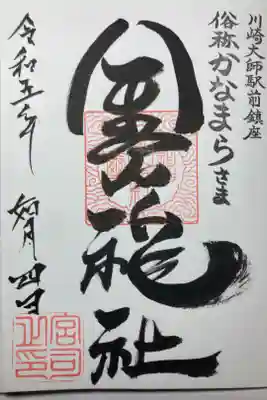 川崎大師駅前鎮座
俗称かなまらさま
金山神社
令和五年 如月四日
宮司之印